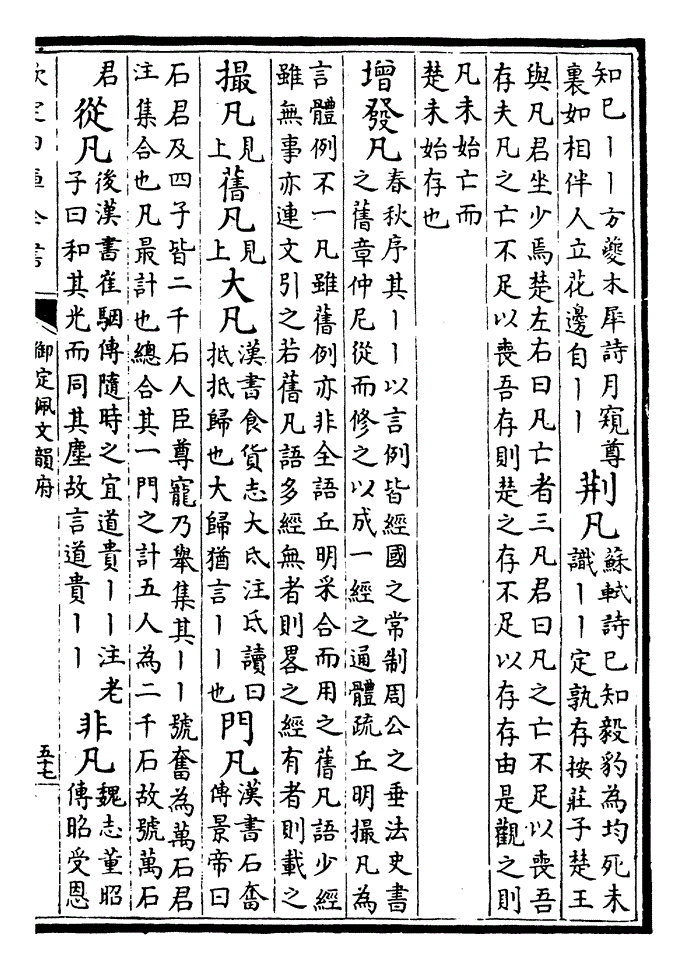 知巳丨丨方夔木犀詩月窺尊
裏如相伴人立花邊自丨丨
荆凡
蘇軾詩已知毅豹為均死未
識丨丨定孰存按莊子楚王
與凡君坐少焉楚左右曰凡亡者三凡君曰凡之亡不足以喪吾
存夫凡之亡不足以喪吾存則楚之存不足以存存由是觀之則
凡未始亡而
楚未始存也
增發凡
春秋序其丨丨以言例皆經國之常制周公之垂法史書
之舊章仲尼從而修之以成一經之通體疏丘明撮凡為
言體例不一凡雖舊例亦非全語丘明采合而用之舊凡語少經
雖無事亦連文引之若舊凡語多經無者則畧之經有者則載之
撮凡
見
上
舊凡
見
上
大凡
漢書食貨志大氐注氐讀曰
抵抵歸也大歸猶言丨丨也
門凡
漢書石奮
傳景帝曰
石君及四子皆二千石人臣尊寵乃舉集其丨丨號奮為萬石君
注集合也凡最計也總合其一門之計五人為二千石故號萬石
君
從凡
後漢書崔駰傳隨時之宜道貴丨丨注老
子曰和其光而同其塵故言道貴丨丨
非凡
魏志董昭
傳昭受恩
欽定四庫全書
御定佩文韻府
五七